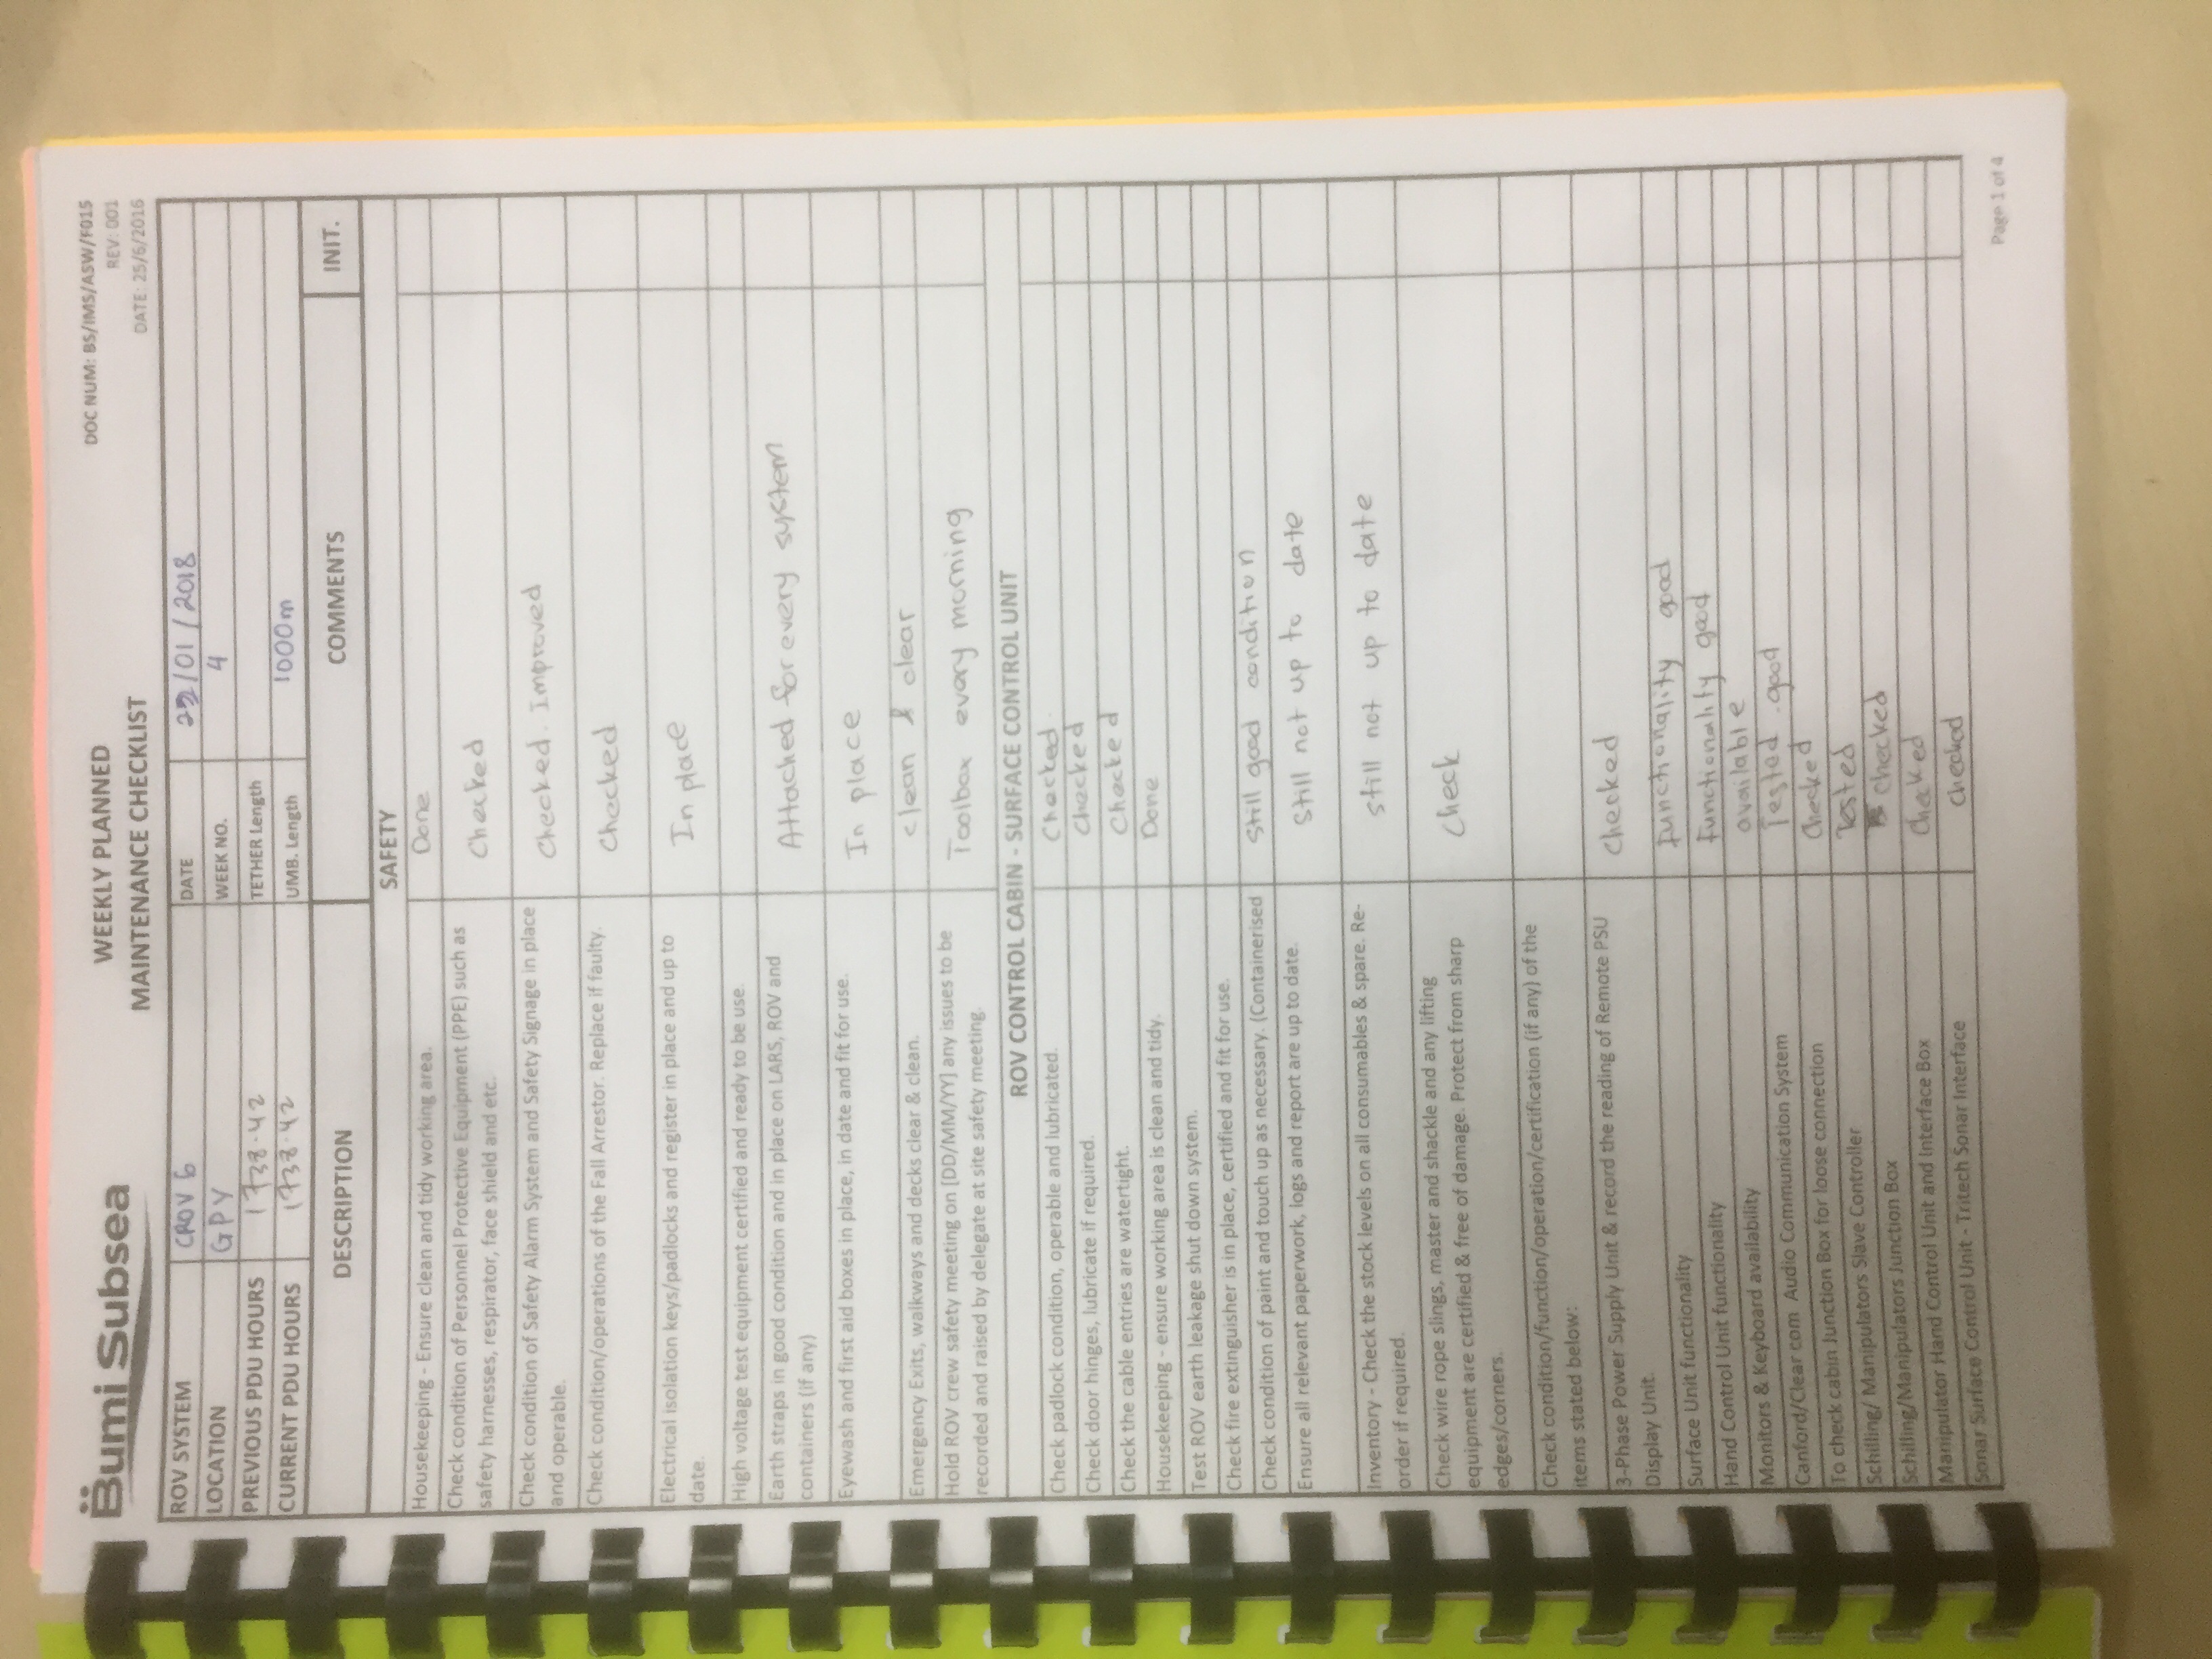 Bumi Subsea
WEEKLY PLANNED
MAINTENANCE CHECKLIST
DOC NUM: BS/IMS/ASW/F015
REV: 001
DATE: 25/6/2016
ROV SYSTEM CROV 6 DATE 22/01/2018
LOCATION GPY WEEK NO. 4
PREVIOUS PDU HOURS 1738.42 TETHER Length
CURRENT PDU HOURS 1738.42 UMB. Length 1000m
DESCRIPTION COMMENTS INIT.
SAFETY
Housekeeping - Ensure clean and tidy working area. Done
Check condition of Personnel Protective Equipment (PPE) such as
safety harnesses, respirator, face shield and etc. Checked
Check condition of Safety Alarm System and Safety Signage in place
and operable. Checked. Improved
Check condition/operations of the Fall Arrestor. Replace if faulty. Checked
Electrical isolation keys/padlocks and register in place and up to
date. In place
High voltage test equipment certified and ready to be use.
Earth straps in good condition and in place on LARS, ROV and
containers (if any) Attached for every system
Eyewash and first aid boxes in place, in date and fit for use. In place
Emergency Exits, walkways and decks clear & clean. clean & clear
Hold ROV crew safety meeting on [DD/MM/YY] any issues to be
recorded and raised by delegate at site safety meeting. Toolbox every morning
ROV CONTROL CABIN - SURFACE CONTROL UNIT
Check padlock condition, operable and lubricated. Checked.
Check door hinges, lubricate if required. Checked
Check the cable entries are watertight. Checked
Housekeeping - ensure working area is clean and tidy. Done
Test ROV earth leakage shut down system.
Check fire extinguisher is in place, certified and fit for use.
Check condition of paint and touch up as necessary. (Containerised Still good condition
Ensure all relevant paperwork, logs and report are up to date. Still not up to date
Inventory - Check the stock levels on all consumables & spare. Re-
order if required. still not up to date
Check wire rope slings, master and shackle and any lifting
equipment are certified & free of damage. Protect from sharp
edges/corners. Check
Check condition/function/operation/certification (if any) of the
items stated below:
3-Phase Power Supply Unit & record the reading of Remote PSU
Display Unit. Checked
Surface Unit functionality Functionality good
Hand Control Unit functionality Functionality good
Monitors & Keyboard availability available
Canford/Clear com Audio Communication System Tested. good
To check cabin Junction Box for loose connection Checked
Schilling/ Manipulators Slave Controller Tested
Schilling/Manipulators Junction Box checked
Manipulator Hand Control Unit and Interface Box Checked
Sonar Surface Control Unit - Tritech Sonar Interface checked
Page 1 of 4